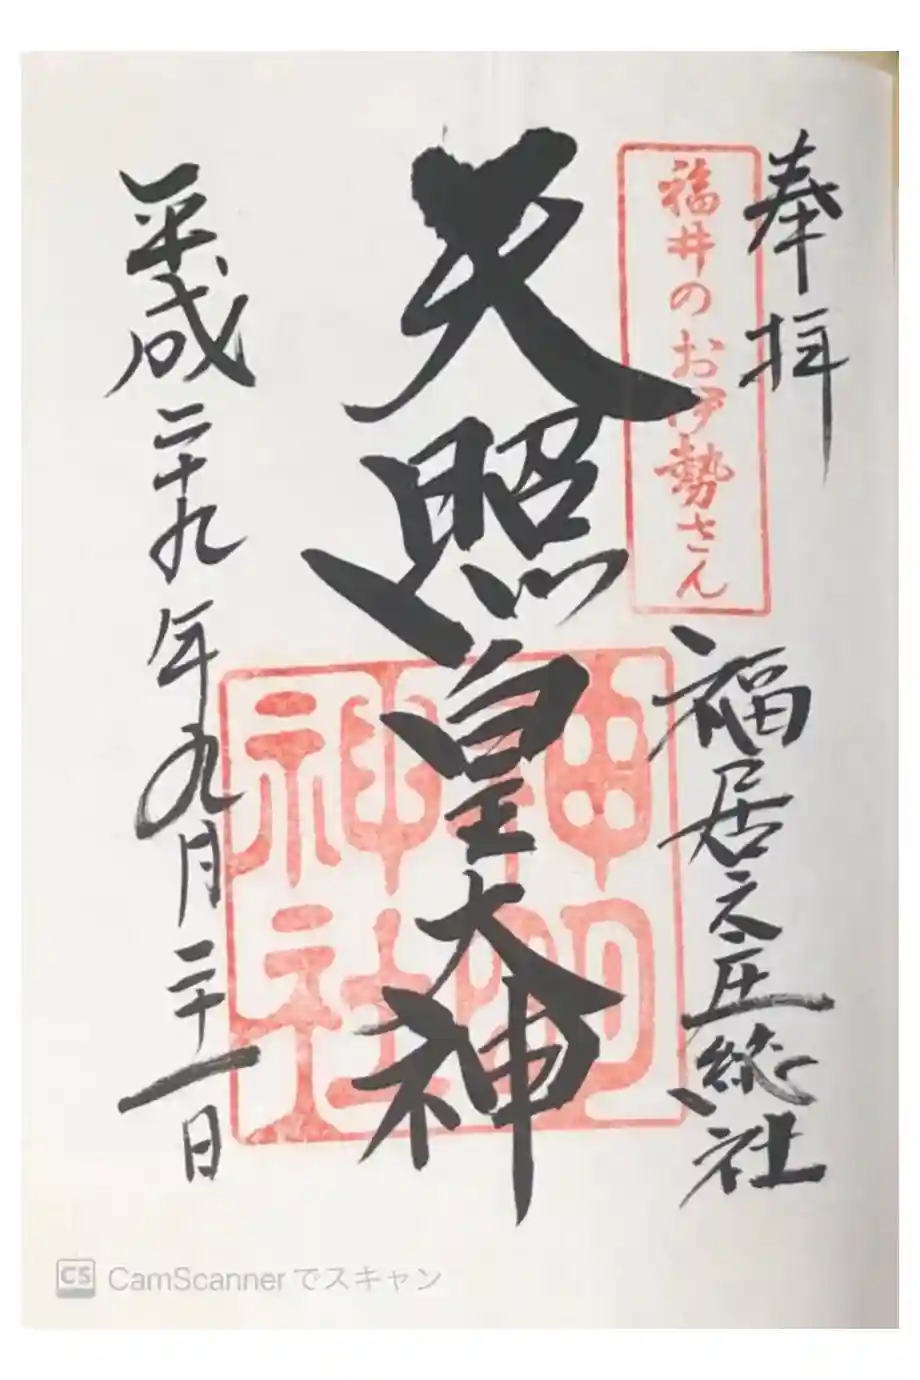 奉拝
福井のお伊勢さん
福居之庄総社
天照皇大神
神明神社
平成二十九年九月二十一日
CS CamScannerでスキャン